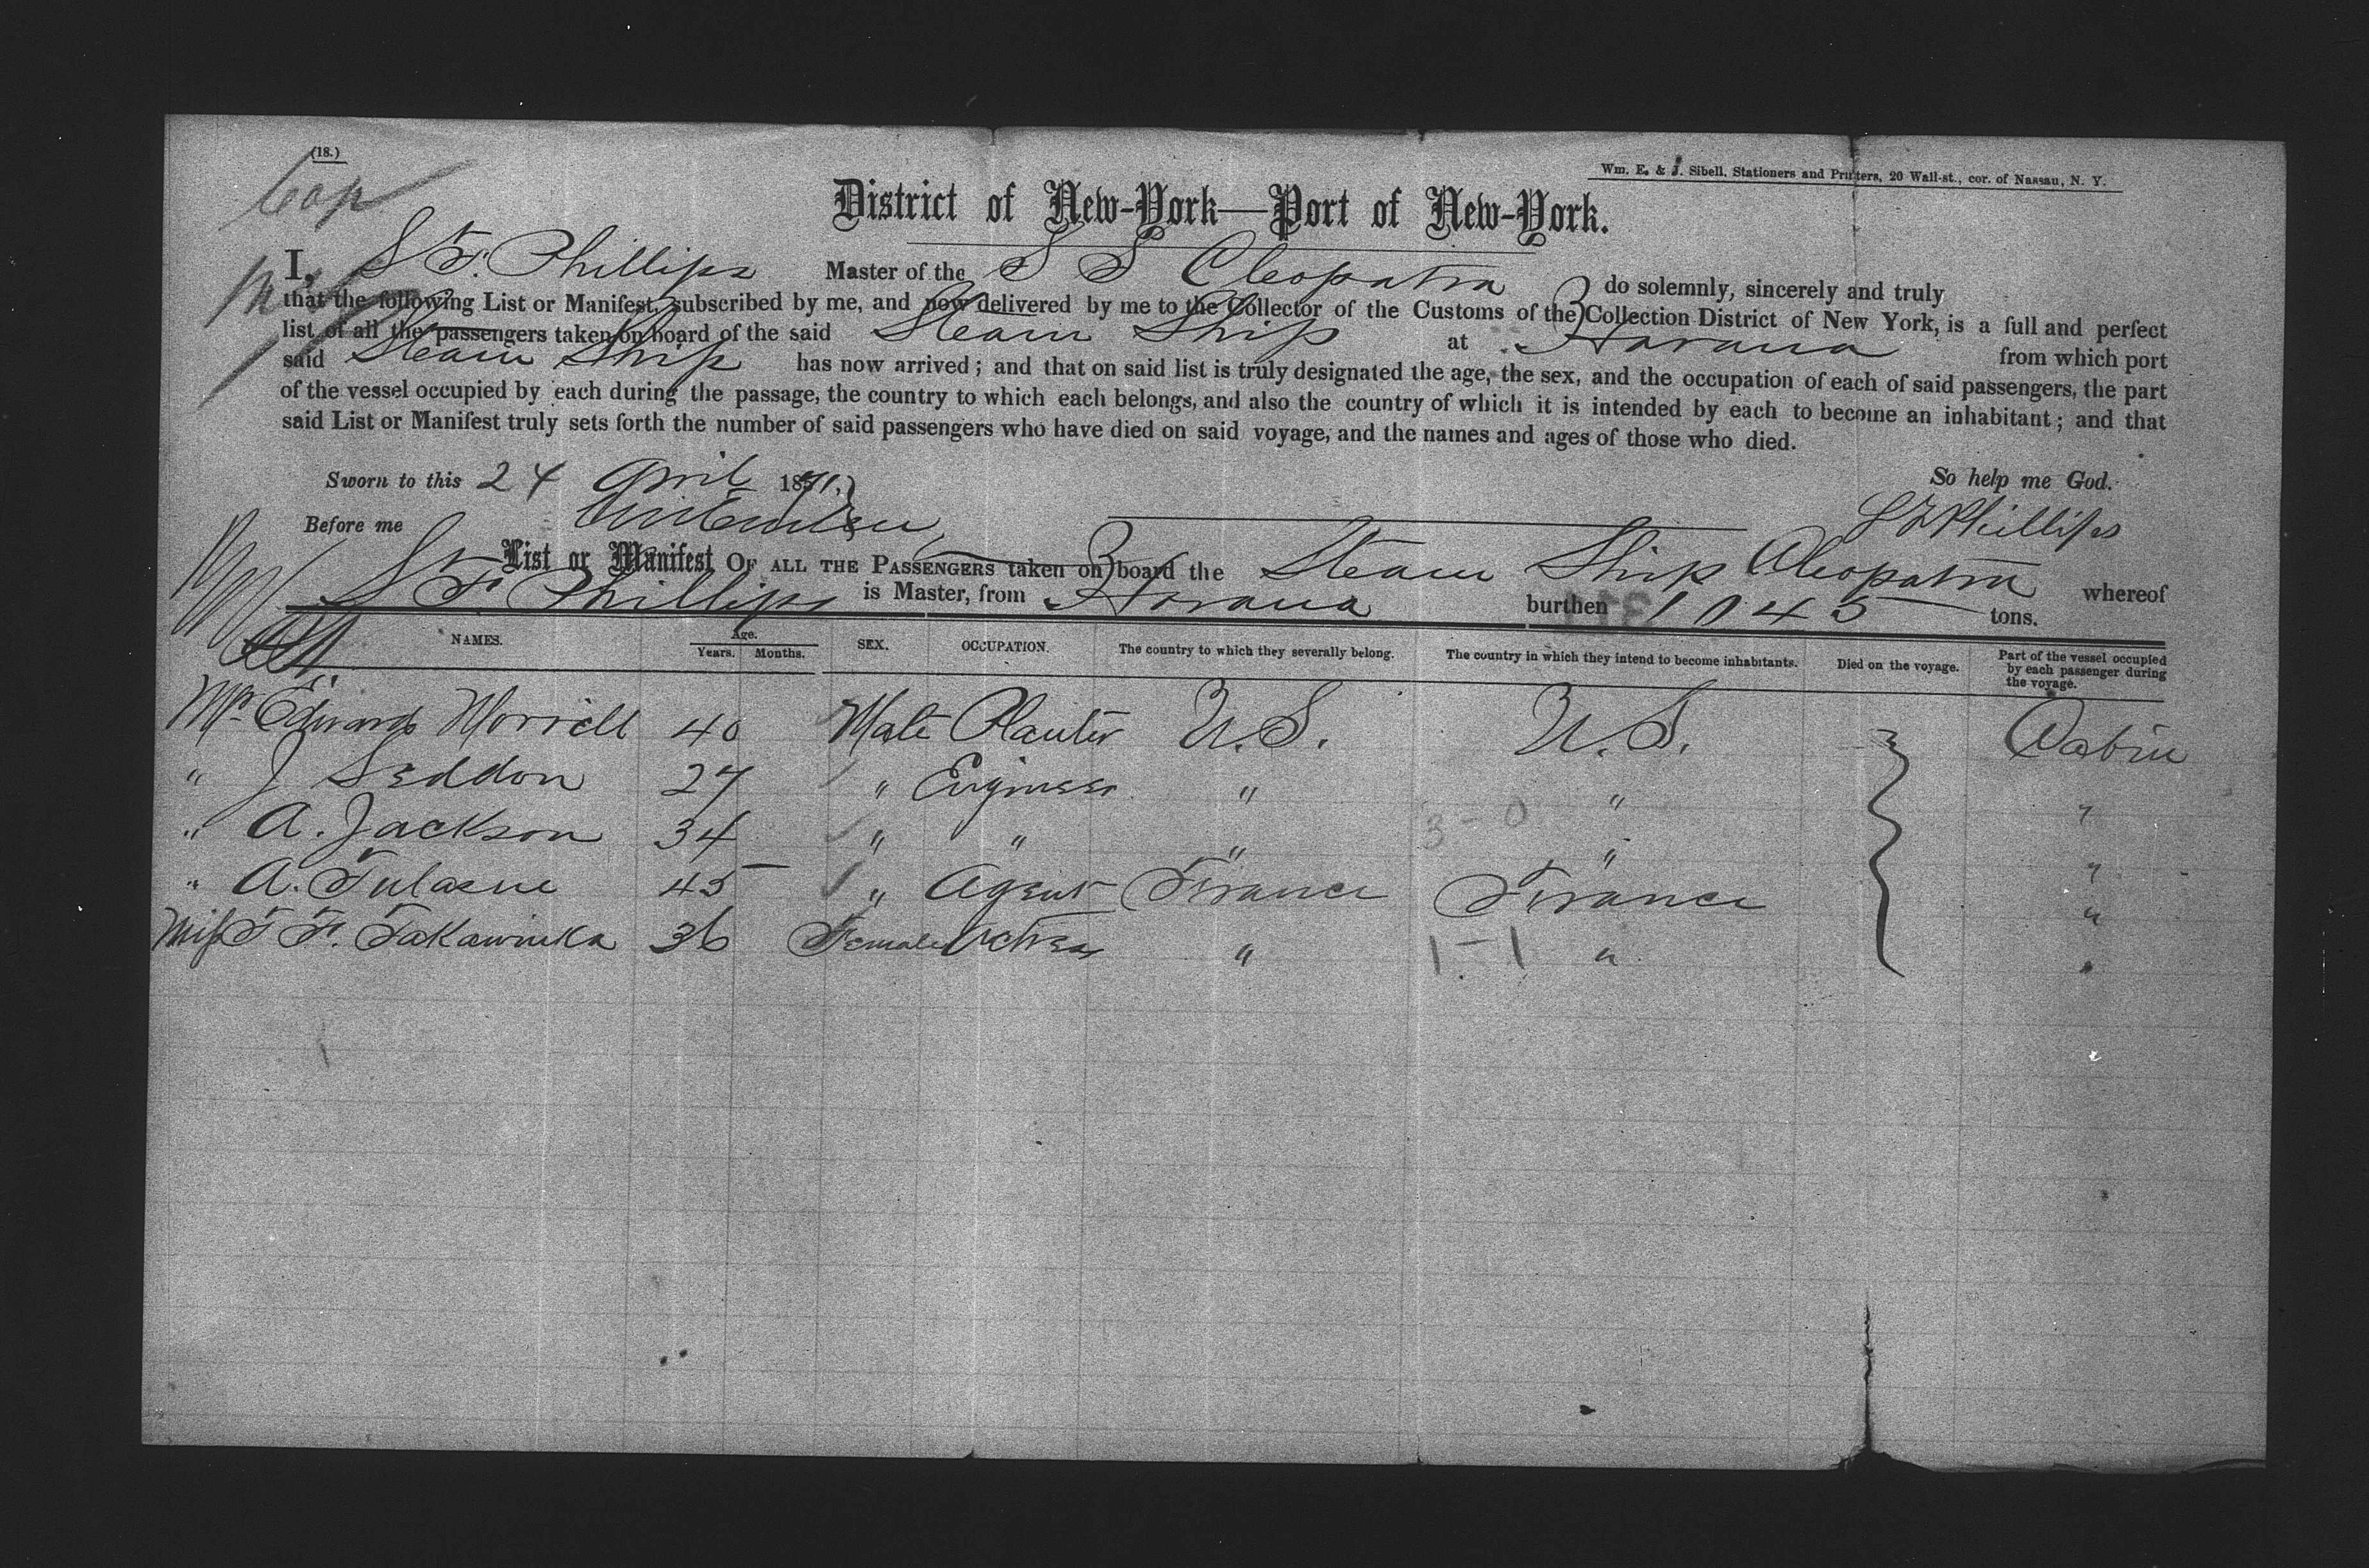 (18.)
Wm. E. & J. Sibell, Stationers and Printers, 20 Wall-st., cor. of Nassau, N. Y.
District of New-York—Port of New-York.
I, S F. Phillips Master of the S S Cleopatra do solemnly, sincerely and truly
that the following List or Manifest, subscribed by me, and now delivered by me to the Collector of the Customs of the Collection District of New York, is a full and perfect
list of all the passengers taken on board of the said Steam Ship at Havana from which port
said Steam Ship has now arrived; and that on said list is truly designated the age, the sex, and the occupation of each of said passengers, the part
of the vessel occupied by each during the passage, the country to which each belongs, and also the country of which it is intended by each to become an inhabitant; and that
said List or Manifest truly sets forth the number of said passengers who have died on said voyage, and the names and ages of those who died.
Sworn to this 24 April 1871. So help me God.
Before me S F Phillips
List or Manifest OF ALL THE PASSENGERS taken on board the Steam Ship Cleopatra whereof
S F Phillips is Master, from Havana burthen 1045 tons.
NAMES. Age. Years. Months. SEX. OCCUPATION. The country to which they severally belong. The country in which they intend to become inhabitants. Died on the voyage. Part of the vessel occupied by each passenger during the voyage.
Mr. Edwards Morrell 40 Male Planter U.S. U.S. Cabin
" J Seddon 27 " Engineer " " "
" A. Jackson 34 " " " 3-0 " "
" A. Tulasne 45 " Agent France France "
Miss F. Takawinka 36 Female Actress " 1-1 " "